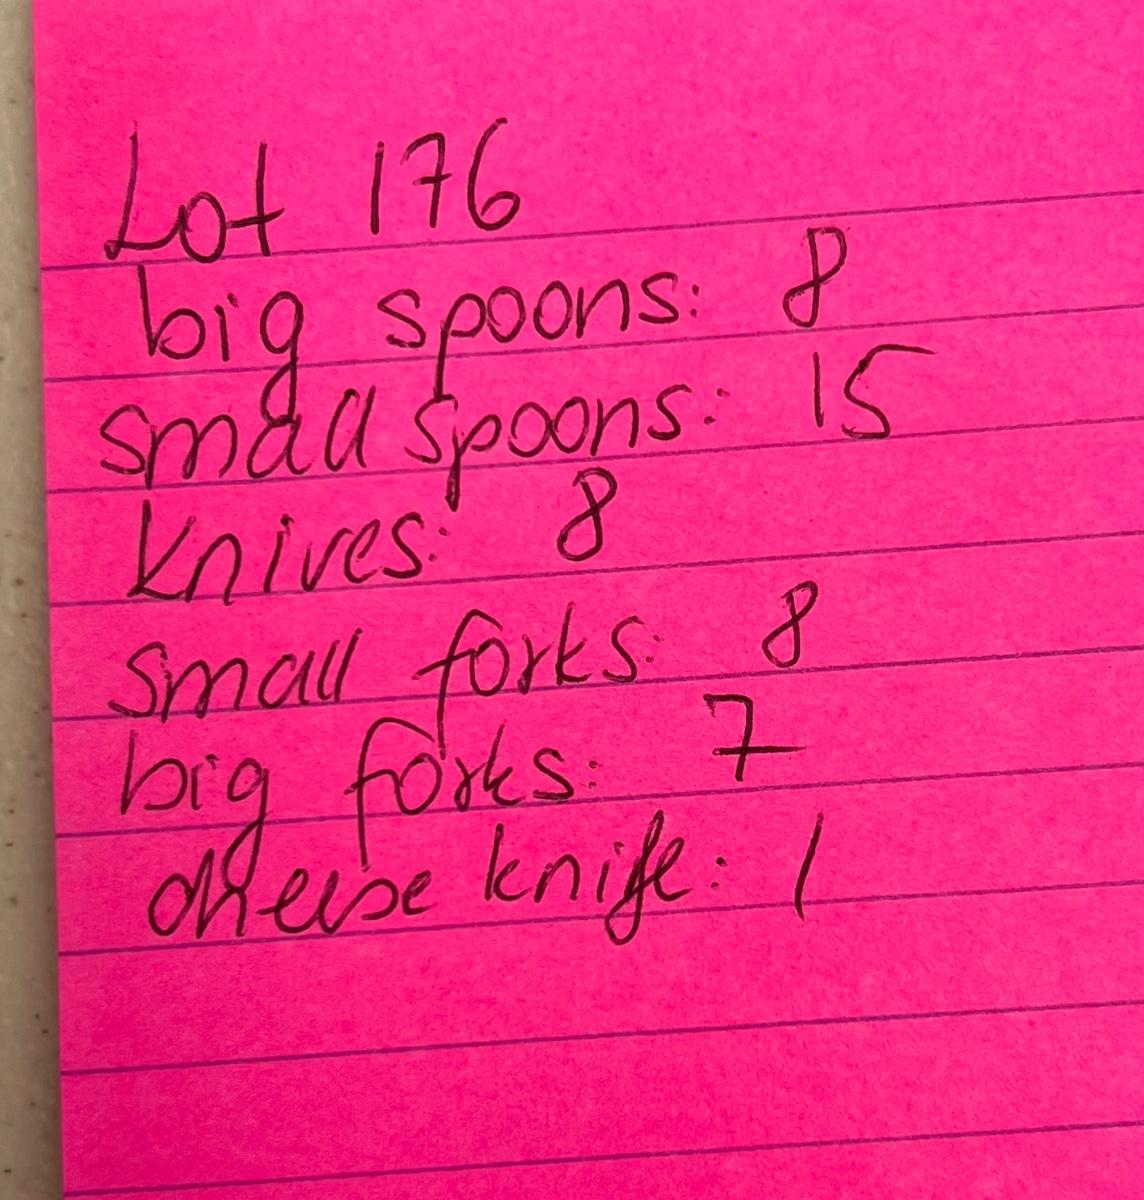 Lot 176
big spoons: 8
small spoons: 15
knives: 8
small forks: 8
big forks: 7
cheese knife: 1